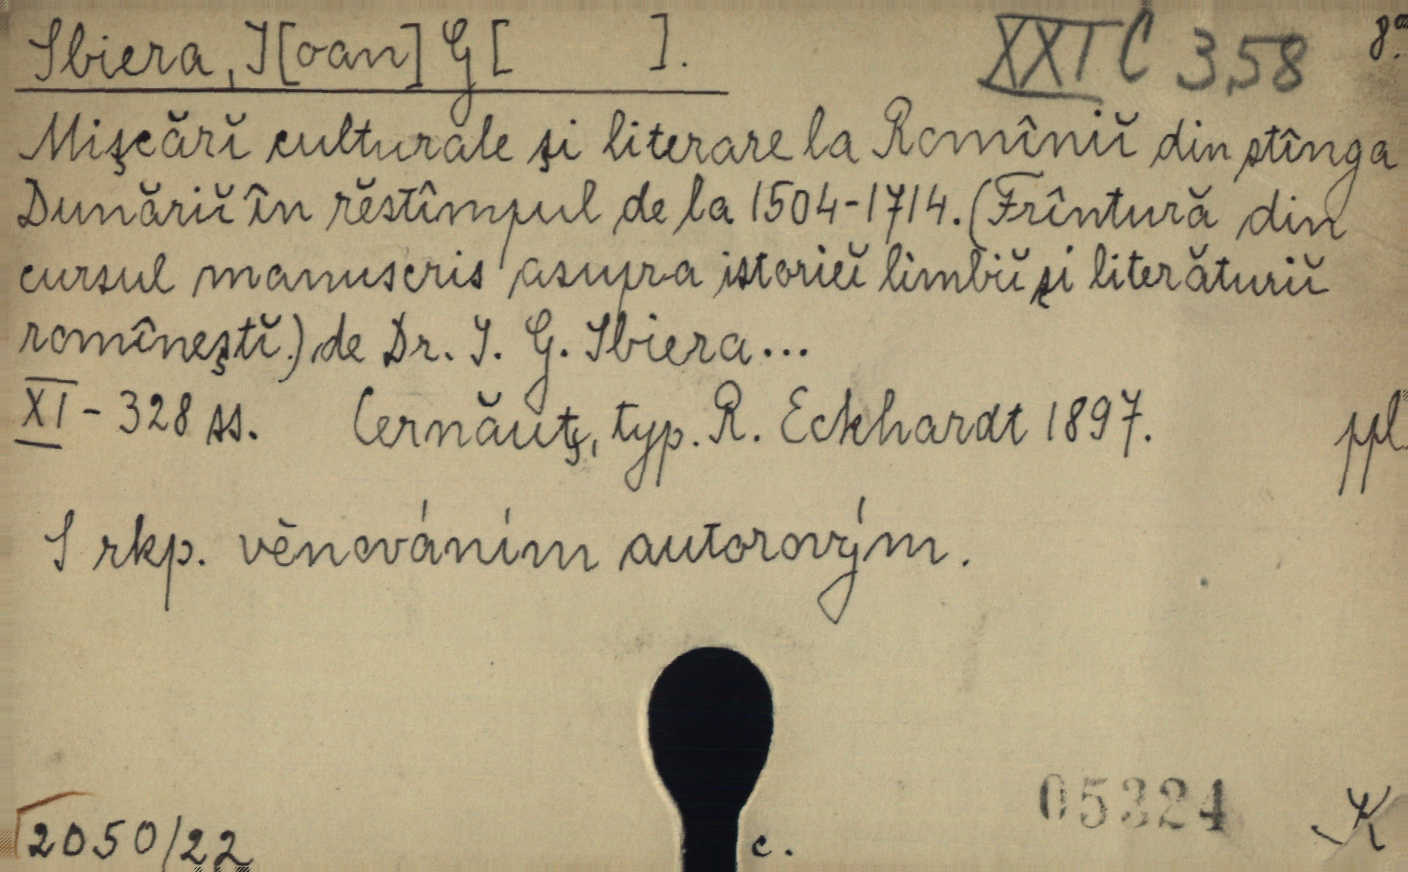 Sbiera, I[oan] G[ ]. XXI C 358 8°.
Mişcărĭ culturale şi literare la Romîniĭ din stînga
Dunăriĭ în rĕstîmpul de la 1504-1714. (Frîntură din
cursul manuscris asupra istorieĭ limbiĭ şi literăturiĭ
romîneştĭ.) de Dr. I. G. Sbiera...
XI - 328 ss. Cernăuţ, typ. R. Eckhardt 1897. ppl.
S rkp. věnováním autorovým.
05324 K
2050/22 c.